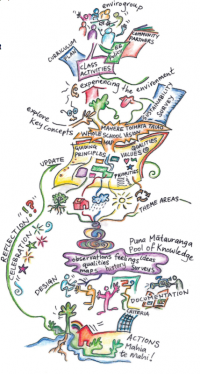 envirogroup
COMMUNITY
PARTNERS
CURRICULUM
CLASS
ACTIVITIES
experiencing the environment
SUSTAINABILITY
SURVEY
MAHERE TOHAPA TAIAO
WHOLE SCHOOL VISION
MAP
explore
Key concepts
GUIDING
PRINCIPLES
QUALITIES
VALUES
UPDATE
PRIORITIES
THEME AREAS
REFLECTION
CELEBRATION
Puna Mātauranga
Pool of Knowledge
observations feelings ideas
qualities
maps history surveys
DESIGN
DOCUMENTATION
CRITERIA
ACTIONS
Mahia
te Mahi!